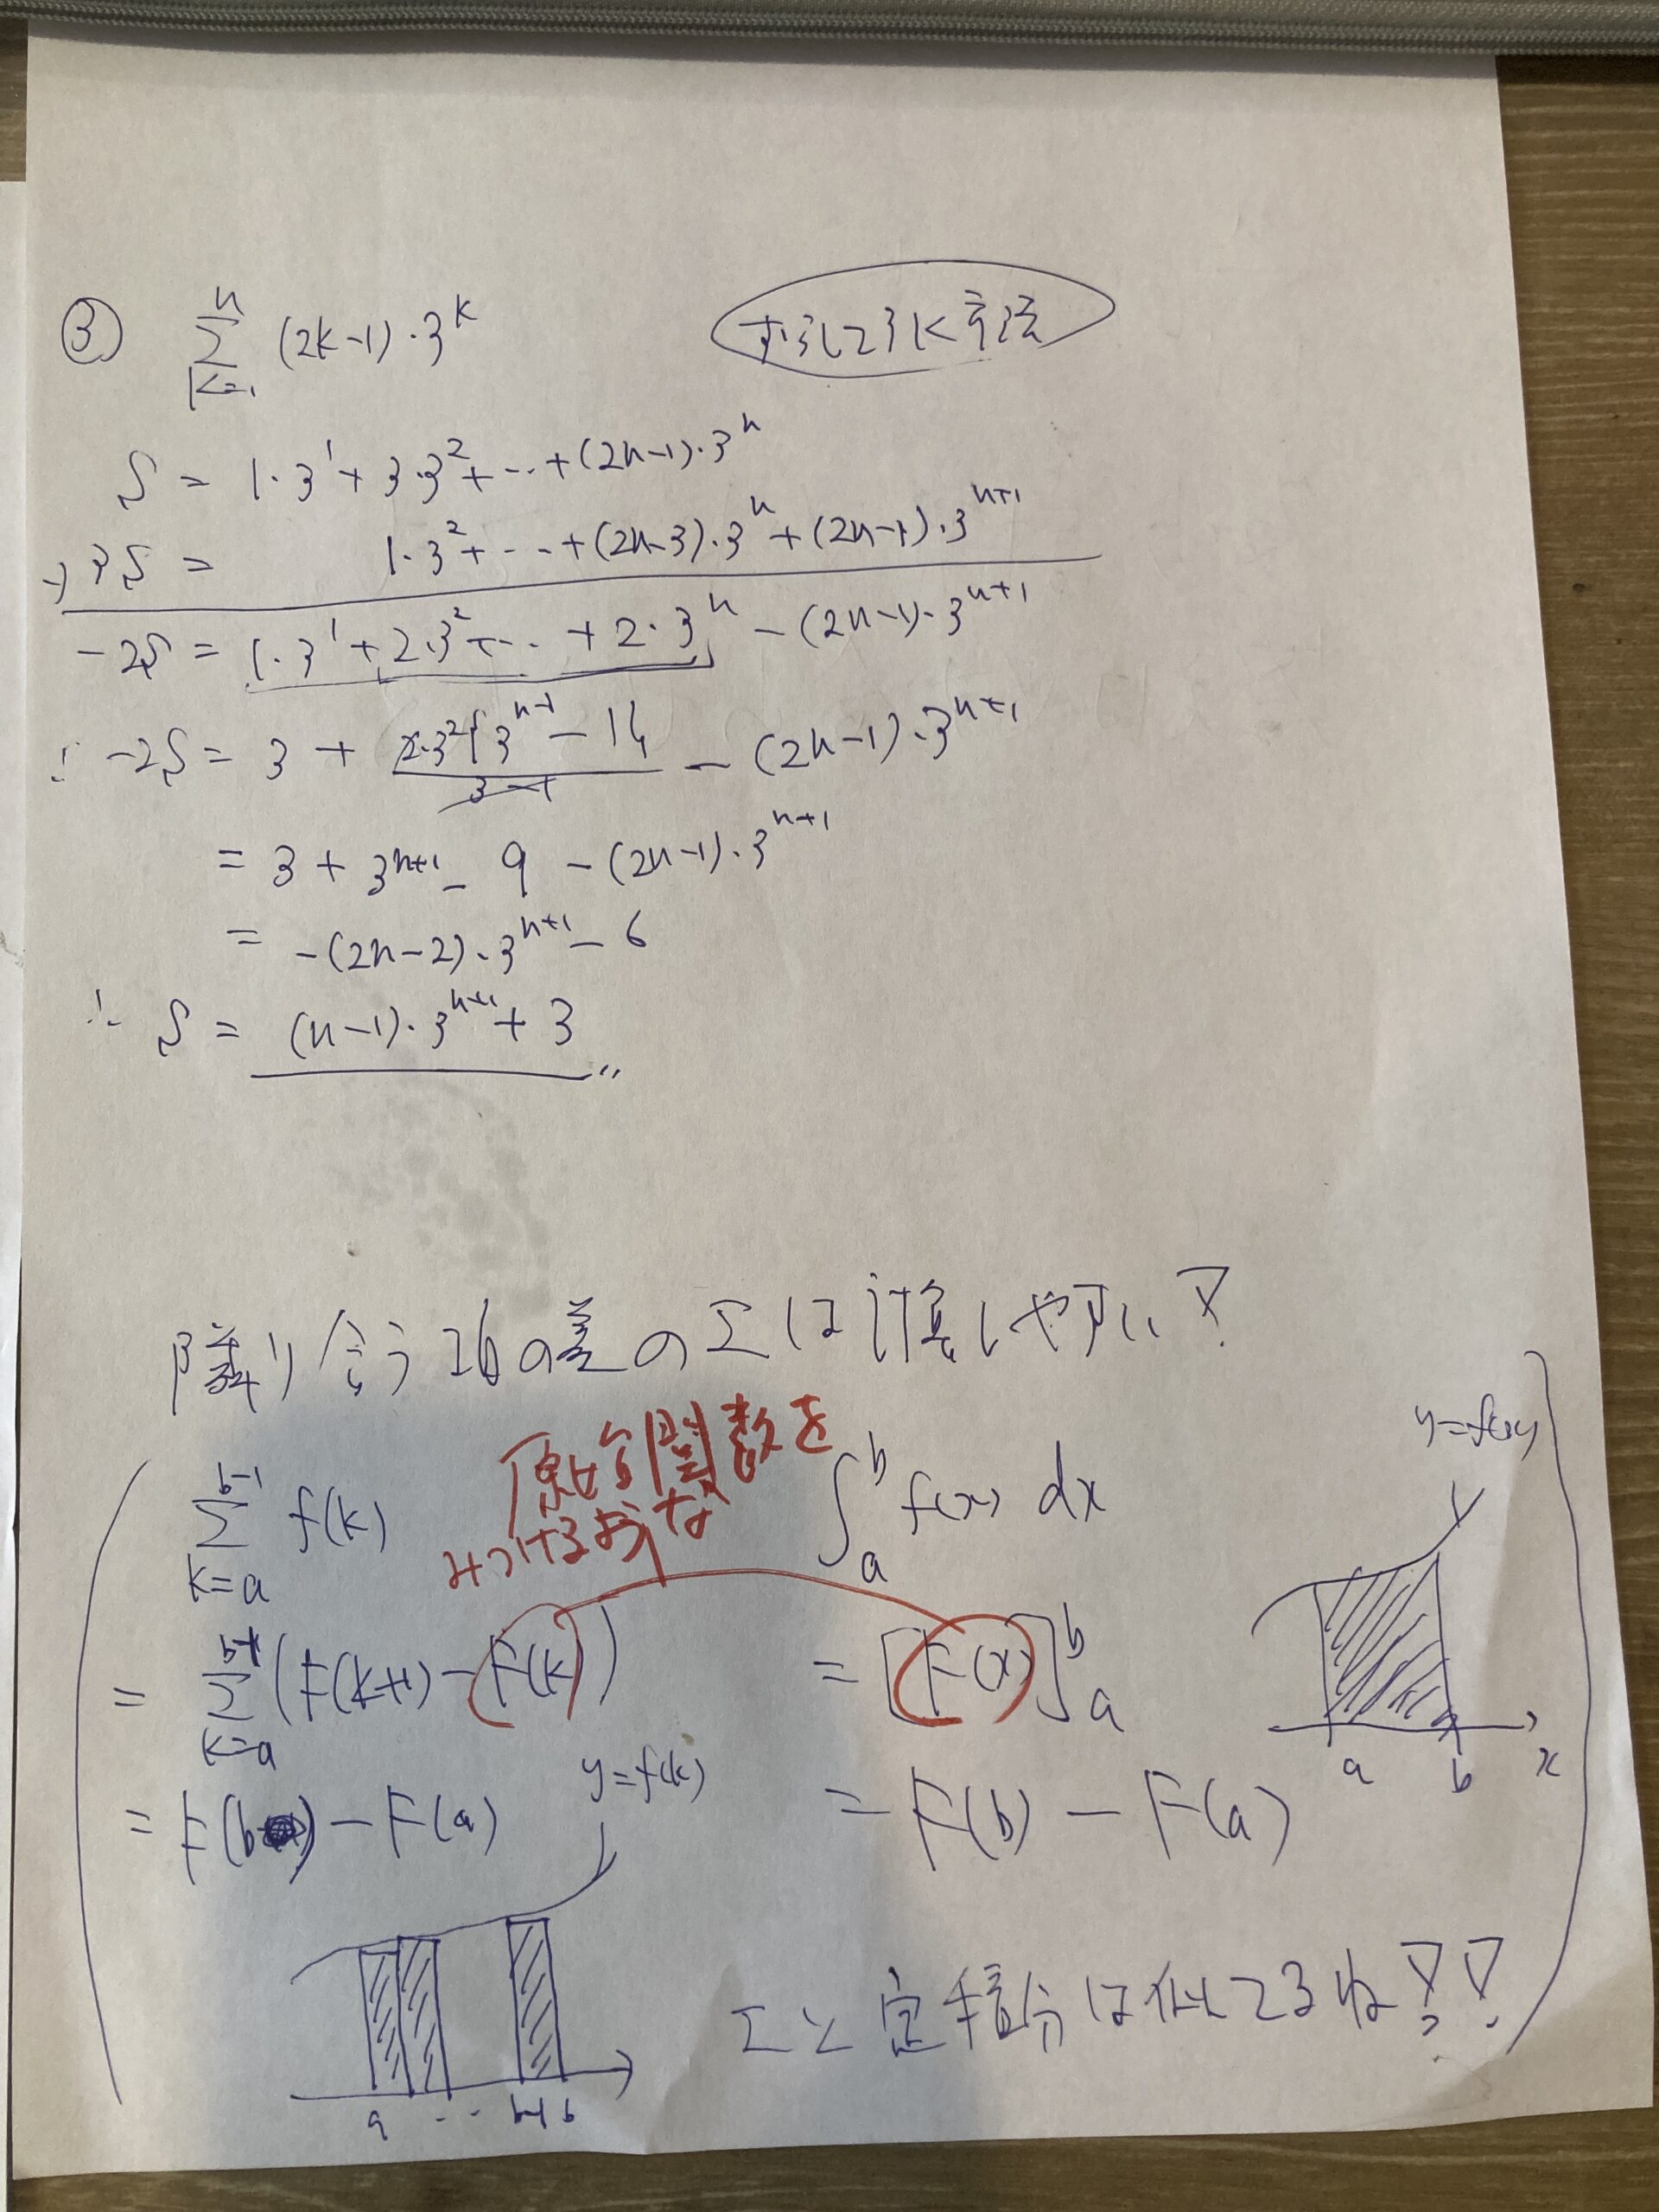 ③ Σ_{k=1}^{n} (2k-1)・3^k
かならず引く
S = 1・3^1 + 3・3^2 + … + (2n-1)・3^n
-) 3S = 1・3^2 + … + (2n-3)・3^n + (2n-1)・3^{n+1}
-2S = 1・3^1 + 2・3^2 + … + 2・3^n - (2n-1)・3^{n+1}
∴ -2S = 3 + 2・3^2{3^{n-1} - 1}/(3-1) - (2n-1)・3^{n+1}
= 3 + 3^{n+1} - 9 - (2n-1)・3^{n+1}
= -(2n-2)・3^{n+1} - 6
∴ S = (n-1)・3^{n+1} + 3 〃
隣り合う項の差のΣは計算しやすい!
原始関数を
みつけるような
Σ_{k=a}^{b-1} f(k)
= Σ_{k=a}^{b-1} (F(k+1) - F(k))
= F(b) - F(a)
y=f(k)
a … b-1 b
∫_a^b f(x) dx
= [F(x)]_a^b
= F(b) - F(a)
y=f(x)
a b x
Σと定積分は似てるね!?!